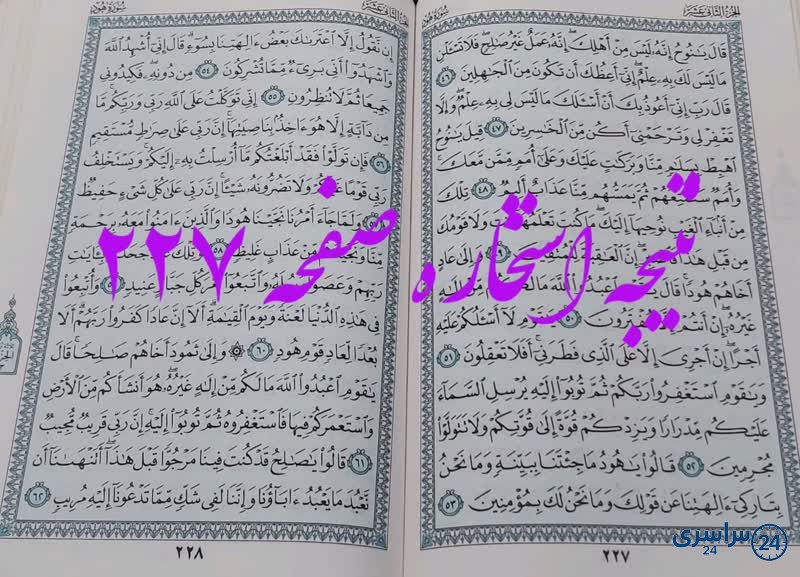 الجزء الثاني عشر
سورة هود
قَالَ يَٰنُوحُ إِنَّهُۥ لَيْسَ مِنْ أَهْلِكَ إِنَّهُۥ عَمَلٌ غَيْرُ صَٰلِحٍ فَلَا تَسْـَٔلْنِ
مَا لَيْسَ لَكَ بِهِۦ عِلْمٌ إِنِّىٓ أَعِظُكَ أَن تَكُونَ مِنَ ٱلْجَٰهِلِينَ ٤٦
قَالَ رَبِّ إِنِّىٓ أَعُوذُ بِكَ أَنْ أَسْـَٔلَكَ مَا لَيْسَ لِى بِهِۦ عِلْمٌ وَإِلَّا
تَغْفِرْ لِى وَتَرْحَمْنِىٓ أَكُن مِّنَ ٱلْخَٰسِرِينَ ٤٧ قِيلَ يَٰنُوحُ
ٱهْبِطْ بِسَلَٰمٍ مِّنَّا وَبَرَكَٰتٍ عَلَيْكَ وَعَلَىٰٓ أُمَمٍ مِّمَّن مَّعَكَ
وَأُمَمٌ سَنُمَتِّعُهُمْ ثُمَّ يَمَسُّهُم مِّنَّا عَذَابٌ أَلِيمٌ ٤٨ تِلْكَ
مِنْ أَنۢبَآءِ ٱلْغَيْبِ نُوحِيهَآ إِلَيْكَ مَا كُنتَ تَعْلَمُهَآ أَنتَ وَلَا قَوْمُكَ
مِن قَبْلِ هَٰذَا إِنَّ ٱلْعَٰقِبَةَ لِلْمُتَّقِينَ ٤٩ وَإِلَىٰ عَادٍ
أَخَاهُمْ هُودًا قَالَ يَٰقَوْمِ ٱعْبُدُوا۟ ٱللَّهَ مَا لَكُم مِّنْ إِلَٰهٍ
غَيْرُهُۥٓ إِنْ أَنتُمْ إِلَّا مُفْتَرُونَ ٥٠ يَٰقَوْمِ لَآ أَسْـَٔلُكُمْ عَلَيْهِ
أَجْرًا إِنْ أَجْرِىَ إِلَّا عَلَى ٱلَّذِى فَطَرَنِىٓ أَفَلَا تَعْقِلُونَ ٥١
وَيَٰقَوْمِ ٱسْتَغْفِرُوا۟ رَبَّكُمْ ثُمَّ تُوبُوٓا۟ إِلَيْهِ يُرْسِلِ ٱلسَّمَآءَ
عَلَيْكُم مِّدْرَارًا وَيَزِدْكُمْ قُوَّةً إِلَىٰ قُوَّتِكُمْ وَلَا تَتَوَلَّوْا۟
مُجْرِمِينَ ٥٢ قَالُوا۟ يَٰهُودُ مَا جِئْتَنَا بِبَيِّنَةٍ وَمَا نَحْنُ
بِتَارِكِىٓ ءَالِهَتِنَا عَن قَوْلِكَ وَمَا نَحْنُ لَكَ بِمُؤْمِنِينَ ٥٣
٢٢٧
سورة هود
الجزء الثاني عشر
إِن نَّقُولُ إِلَّا ٱعْتَرَىٰكَ بَعْضُ ءَالِهَتِنَا بِسُوٓءٍ قَالَ إِنِّىٓ أُشْهِدُ ٱللَّهَ
وَٱشْهَدُوٓا۟ أَنِّى بَرِىٓءٌ مِّمَّا تُشْرِكُونَ ٥٤ مِن دُونِهِۦ فَكِيدُونِى
جَمِيعًا ثُمَّ لَا تُنظِرُونِ ٥٥ إِنِّى تَوَكَّلْتُ عَلَى ٱللَّهِ رَبِّى وَرَبِّكُم مَّا
مِن دَآبَّةٍ إِلَّا هُوَ ءَاخِذٌۢ بِنَاصِيَتِهَآ إِنَّ رَبِّى عَلَىٰ صِرَٰطٍ مُّسْتَقِيمٍ
٥٦ فَإِن تَوَلَّوْا۟ فَقَدْ أَبْلَغْتُكُم مَّآ أُرْسِلْتُ بِهِۦٓ إِلَيْكُمْ وَيَسْتَخْلِفُ
رَبِّى قَوْمًا غَيْرَكُمْ وَلَا تَضُرُّونَهُۥ شَيْـًٔا إِنَّ رَبِّى عَلَىٰ كُلِّ شَىْءٍ حَفِيظٌ
٥٧ وَلَمَّا جَآءَ أَمْرُنَا نَجَّيْنَا هُودًا وَٱلَّذِينَ ءَامَنُوا۟ مَعَهُۥ بِرَحْمَةٍ
مِّنَّا وَنَجَّيْنَٰهُم مِّنْ عَذَابٍ غَلِيظٍ ٥٨ وَتِلْكَ عَادٌ جَحَدُوا۟ بِـَٔايَٰتِ
رَبِّهِمْ وَعَصَوْا۟ رُسُلَهُۥ وَٱتَّبَعُوٓا۟ أَمْرَ كُلِّ جَبَّارٍ عَنِيدٍ ٥٩ وَأُتْبِعُوا۟
فِى هَٰذِهِ ٱلدُّنْيَا لَعْنَةً وَيَوْمَ ٱلْقِيَٰمَةِ أَلَآ إِنَّ عَادًا كَفَرُوا۟ رَبَّهُمْ أَلَا
بُعْدًا لِّعَادٍ قَوْمِ هُودٍ ٦٠ ۞ وَإِلَىٰ ثَمُودَ أَخَاهُمْ صَٰلِحًا قَالَ
يَٰقَوْمِ ٱعْبُدُوا۟ ٱللَّهَ مَا لَكُم مِّنْ إِلَٰهٍ غَيْرُهُۥ هُوَ أَنشَأَكُم مِّنَ ٱلْأَرْضِ
وَٱسْتَعْمَرَكُمْ فِيهَا فَٱسْتَغْفِرُوهُ ثُمَّ تُوبُوٓا۟ إِلَيْهِ إِنَّ رَبِّى قَرِيبٌ مُّجِيبٌ
٦١ قَالُوا۟ يَٰصَٰلِحُ قَدْ كُنتَ فِينَا مَرْجُوًّا قَبْلَ هَٰذَآ أَتَنْهَىٰنَآ أَن
نَّعْبُدَ مَا يَعْبُدُ ءَابَآؤُنَا وَإِنَّنَا لَفِى شَكٍّ مِّمَّا تَدْعُونَآ إِلَيْهِ مُرِيبٍ ٦٢
٢٢٨
نتیجه استخاره صفحه ۲۲۷
سراسری 24
24